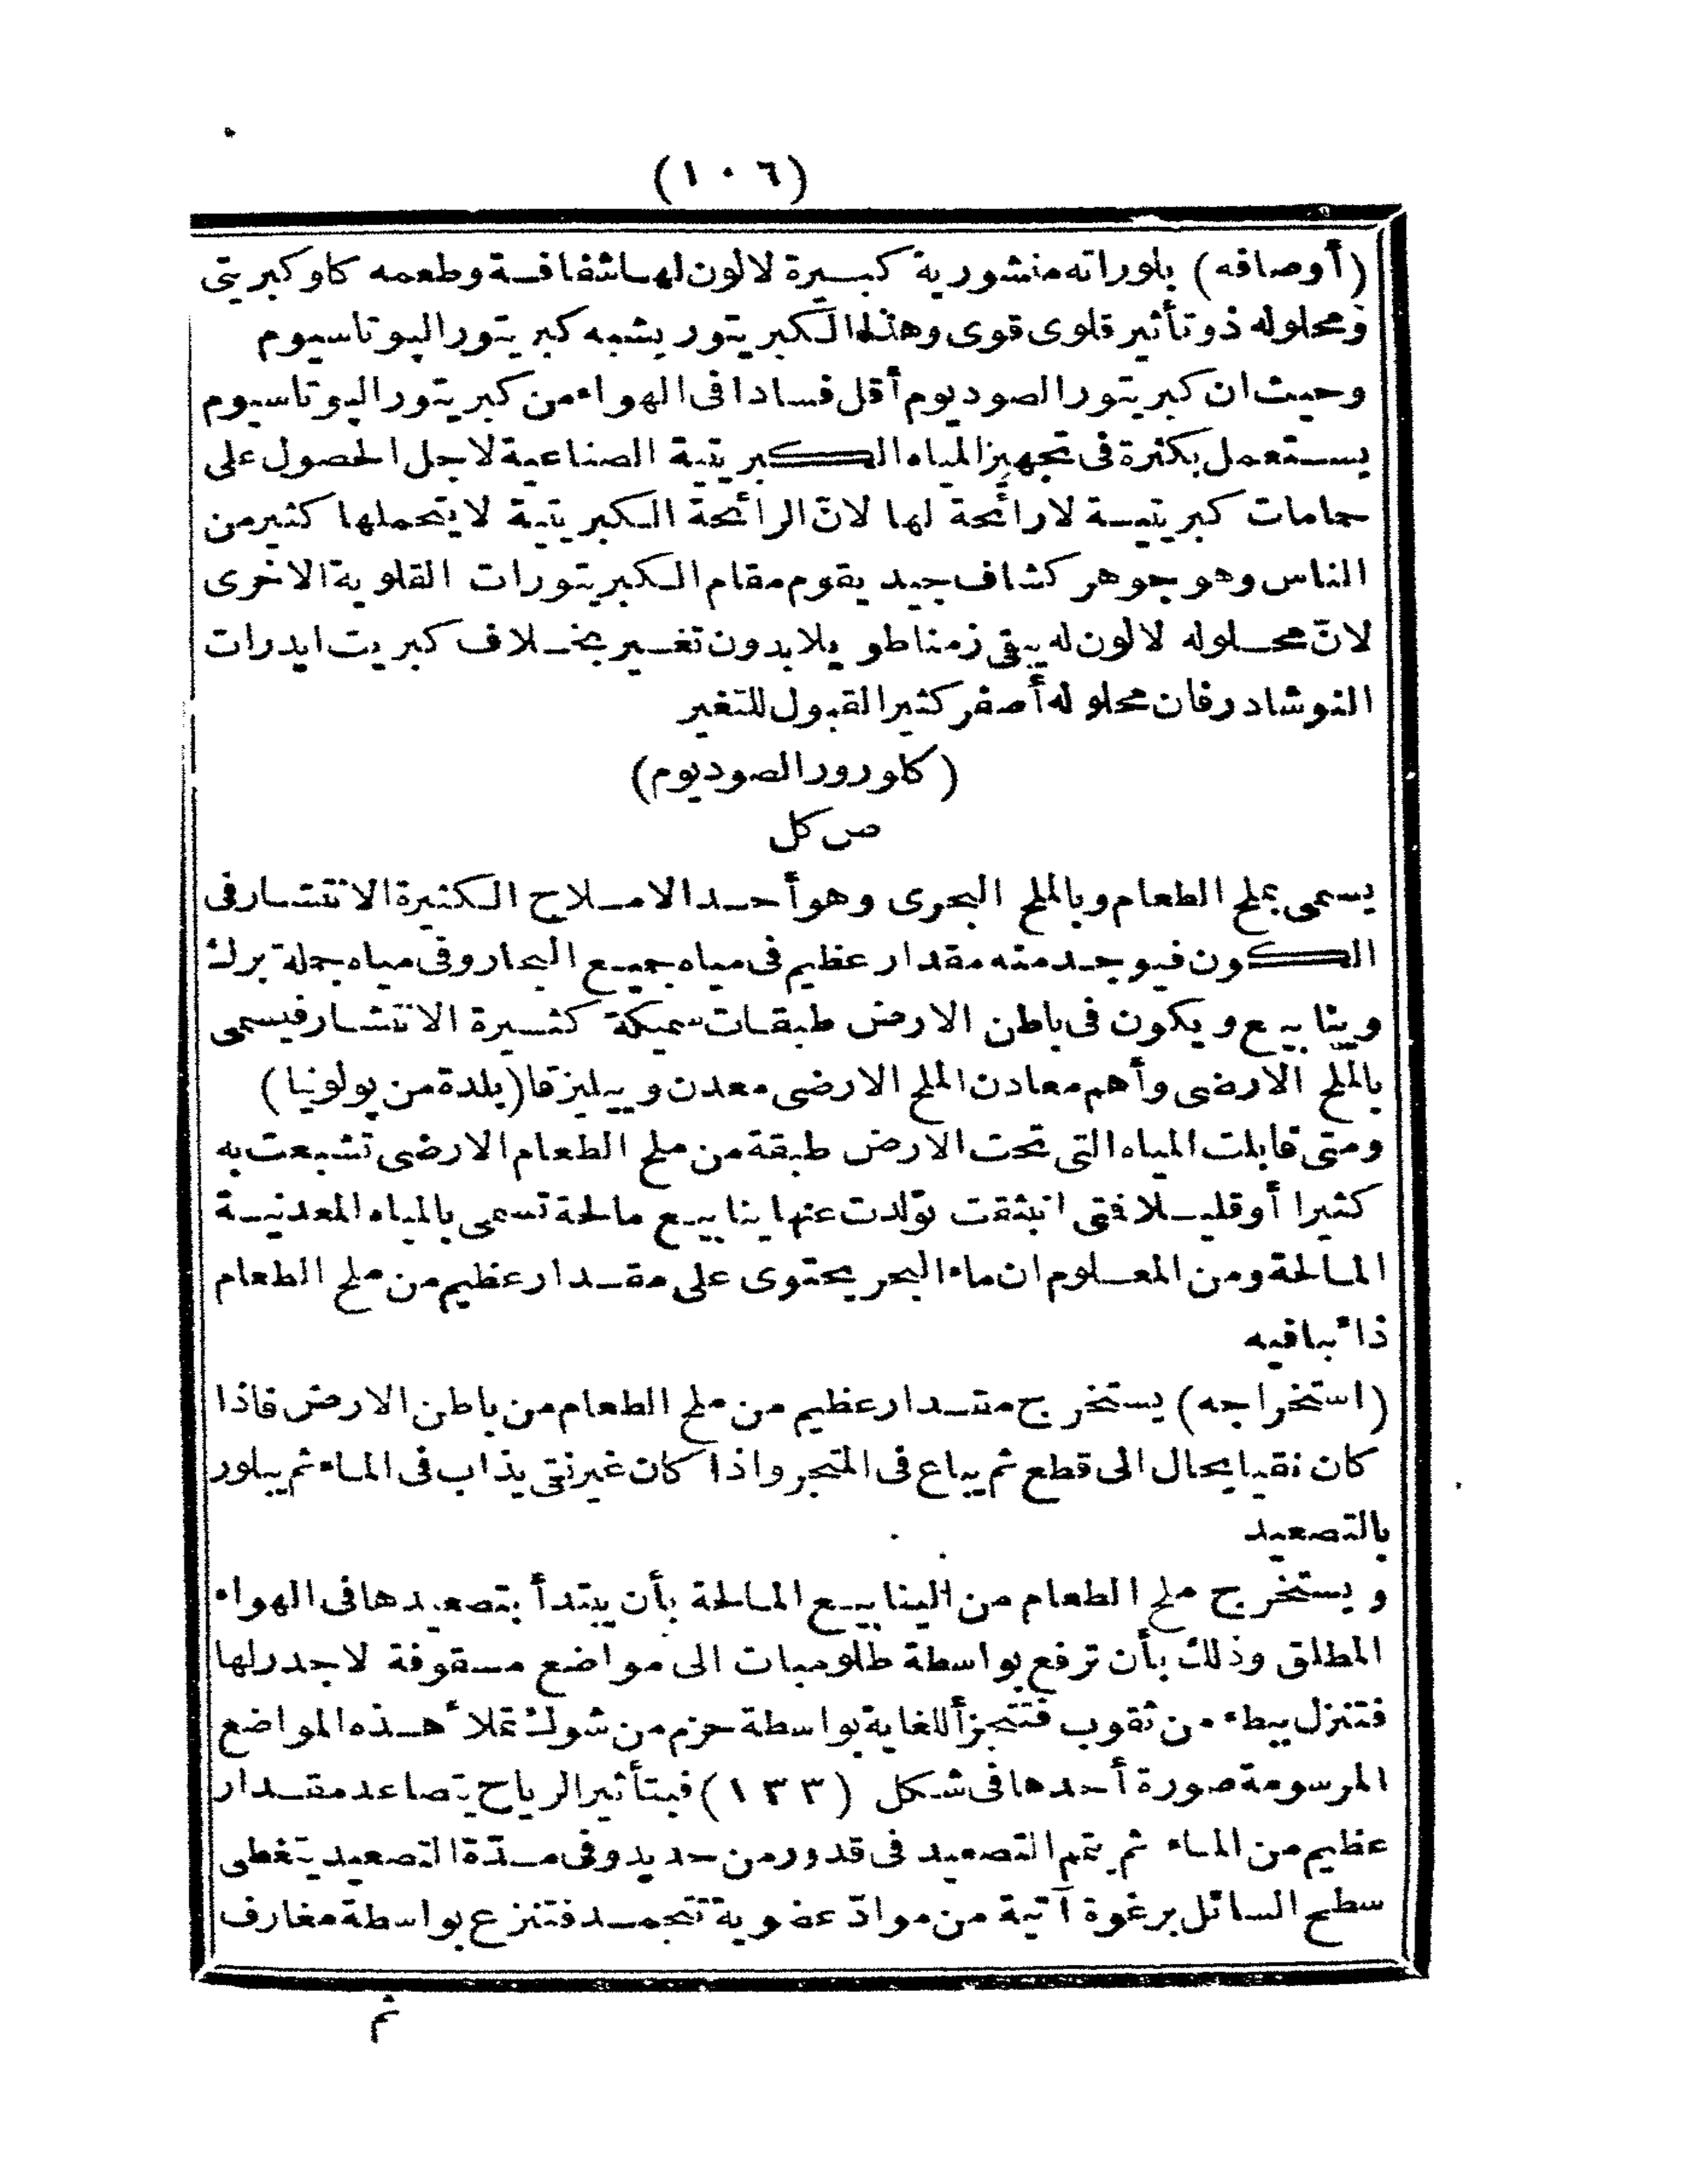 (١٠٦)
(أوصافه) بلوراته منشورية كبيرة لا لون لها شفافة وطعمه كاو كبريتى
ومحلوله ذو تأثير قلوى قوى وهذا الكبريتور يشبه كبريتور البوتاسيوم
وحيث ان كبريتور الصوديوم أقل فسادا فى الهواء من كبريتور البوتاسيوم
يستعمل بكثرة فى تجهيز المياه الكبريتية الصناعية لاجل الحصول على
حمامات كبريتية لا رائحة لها لانّ الرائحة الكبريتية لا يتحملها كثير من
الناس وهو جوهر كشاف جيد يقوم مقام الكبريتورات القلوية الاخرى
لانّ محلوله لا لون له يبقى زمنا طويلا بدون تغير بخلاف كبريت ايدرات
النوشادر فان محلوله أصفر كثير القبول للتغير
(كلورور الصوديوم)
ص كل
يسمى بملح الطعام وبالملح البحرى وهو أحد الاملاح الكثيرة الانتشار فى
الكون فيوجد منه مقدار عظيم فى مياه جميع البحار وفى مياه جملة برك
وينابيع ويكون فى باطن الارض طبقات سميكة كثيرة الانتشار فيسمى
بالملح الارضى وأهم معادن الملح الارضى معدن ويبليزقا (بلدة من پولونيا)
ومتى قابلت المياه التى تحت الارض طبقة من ملح الطعام الارضى تشبعت به
كثيرا أو قليلا فتى انبثقت تولدت عنها ينابيع مالحة تسمى بالمياه المعدنية
المالحة ومن المعلوم ان ماء البحر يحتوى على مقدار عظيم من ملح الطعام
ذائبا فيه
(استخراجه) يستخرج مقدار عظيم من ملح الطعام من باطن الارض فاذا
كان نقيا يحال الى قطع ثم يباع فى المتجر واذا كان غير نقى يذاب فى الماء ثم يبلور
بالتصعيد
ويستخرج ملح الطعام من الينابيع المالحة بأن يبتدأ بتصعيدها فى الهواء
المطلق وذلك بأن ترفع بواسطة طلومبات الى مواضع مسقوفة لا جدر لها
فتنزل ببطء من ثقوب فتتجزأ للغاية بواسطة حزم من شوك تملأ هذه المواضع
المرسومة صورة أحدها فى شكل (١٣٣) فبتأثير الرياح يتصاعد مقدار
عظيم من الماء ثم يتمم التصعيد فى قدور من حديد وفى مدّة التصعيد يتغطى
سطح السائل برغوة آتية من موادّ عضوية تتجمد فتنزع بواسطة مغارف
ثم